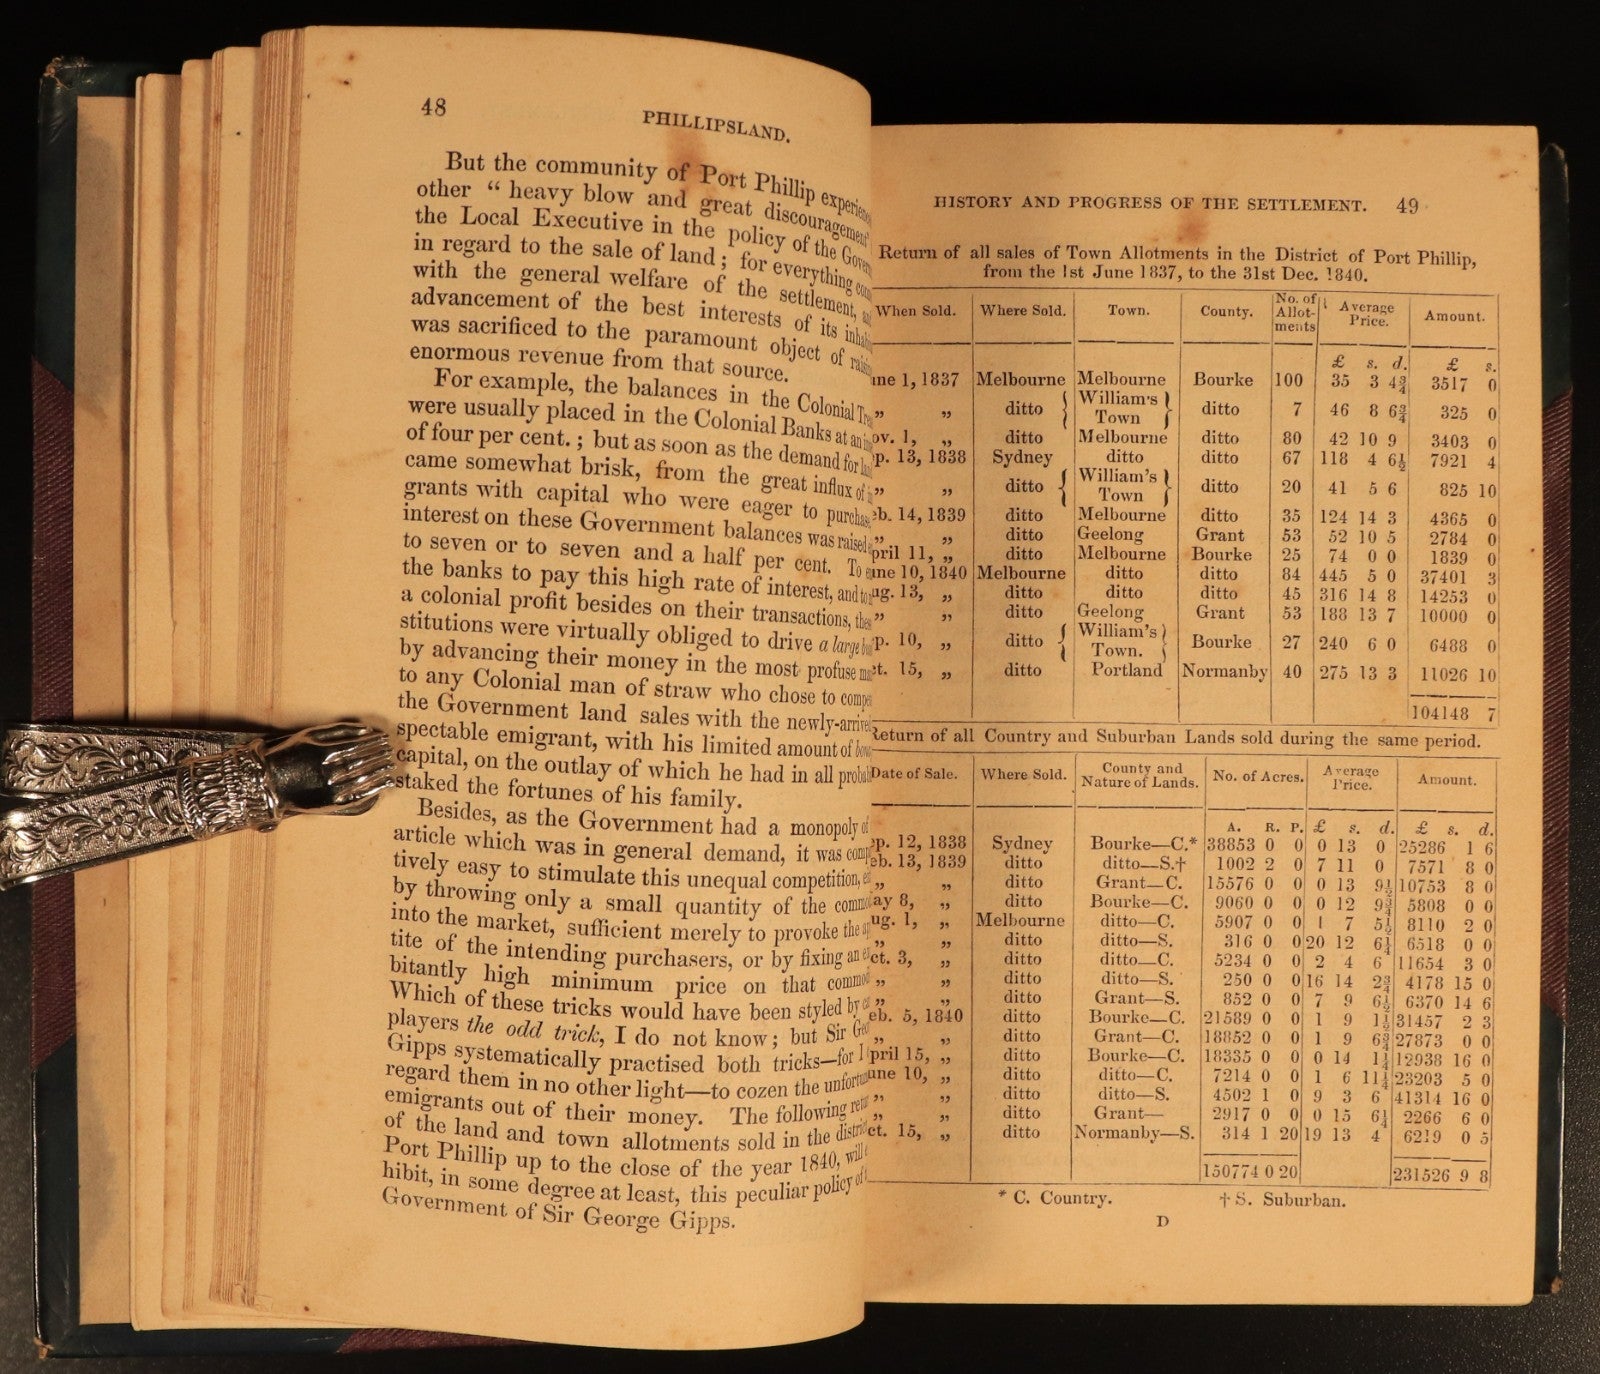 48
PHILLIPSLAND.
But the community of Port Phillip
other " heavy blow and great discouragement"
the Local Executive in the policy of the
in regard to the sale of land ; for everything
with the general welfare of the settlement,
advancement of the best interests of its
was sacrificed to the paramount object of
enormous revenue from that source.
For example, the balances in the Colonial
were usually placed in the Colonial Banks at an
of four per cent. ; but as soon as the demand for
came somewhat brisk, from the great influx of
grants with capital who were eager to
interest on these Government balances was raised
to seven or to seven and a half per cent. To
the banks to pay this high rate of interest, and to
a colonial profit besides on their transactions,
stitutions were virtually obliged to drive a large
by advancing their money in the most profuse
to any Colonial man of straw who chose to
the Government land sales with the
spectable emigrant, with his limited amount of
capital, on the outlay of which he had in all
staked the fortunes of his family.
Besides, as the Government had a monopoly of
article which was in general demand, it was
tively easy to stimulate this unequal competition,
by throwing only a small quantity of the
into the market, sufficient merely to provoke the
tite of the intending purchasers, or by fixing an
bitantly high minimum price on that
Which of these tricks would have been styled by
players the odd trick, I do not know ; but Sir
Gipps systematically practised both tricks—for I
regard them in no other light—to cozen the
emigrants out of their money. The following
of the land and town allotments sold in the
Port Phillip up to the close of the year 1840,
hibit, in some degree at least, this peculiar policy of
Government of Sir George Gipps.
HISTORY AND PROGRESS OF THE SETTLEMENT. 49
Return of all sales of Town Allotments in the District of Port Phillip,
from the 1st June 1837, to the 31st Dec. 1840.
When Sold. Where Sold. Town. County. No. of Allot- ments Average Price. Amount.
£ s. d. £ s.
une 1, 1837 Melbourne Melbourne Bourke 100 35 3 4¾ 3517 0
„ „ ditto { William's Town } ditto 7 46 8 6¾ 325 0
ov. 1, „ ditto Melbourne ditto 80 42 10 9 3403 0
p. 13, 1838 Sydney ditto ditto 67 118 4 6½ 7921 4
„ „ ditto { William's Town } ditto 20 41 5 6 825 10
eb. 14, 1839 ditto Melbourne ditto 35 124 14 3 4365 0
„ „ ditto Geelong Grant 53 52 10 5 2784 0
pril 11, „ ditto Melbourne Bourke 25 74 0 0 1839 0
une 10, 1840 Melbourne ditto ditto 84 445 5 0 37401 3
ug. 13, „ ditto ditto ditto 45 316 14 8 14253 0
„ „ ditto Geelong Grant 53 188 13 7 10000 0
p. 10, „ ditto { William's Town. } Bourke 27 240 6 0 6488 0
ct. 15, „ ditto Portland Normanby 40 275 13 3 11026 10
104148 7
Return of all Country and Suburban Lands sold during the same period.
Date of Sale. Where Sold. County and Nature of Lands. No. of Acres. Average Price. Amount.
A. R. P. £ s. d. £ s. d.
p. 12, 1838 Sydney Bourke—C.* 38853 0 0 0 13 0 25286 1 6
eb. 13, 1839 ditto ditto—S.† 1002 2 0 7 11 0 7571 8 0
„ „ ditto Grant—C. 15576 0 0 0 13 9½ 10753 8 0
ay 8, „ ditto Bourke—C. 9060 0 0 0 12 9¾ 5808 0 0
ug. 1, „ Melbourne ditto—C. 5907 0 0 1 7 5½ 8110 2 0
„ „ ditto ditto—S. 316 0 0 20 12 6¼ 6518 0 0
ct. 3, „ ditto ditto—C. 5234 0 0 2 4 6 11654 3 0
„ „ ditto ditto—S. 250 0 0 16 14 2¾ 4178 15 0
„ „ ditto Grant—S. 852 0 0 7 9 6½ 6370 14 6
eb. 5, 1840 ditto Bourke—C. 21589 0 0 1 9 1½ 31457 2 3
„ „ ditto Grant—C. 18852 0 0 1 9 6¾ 27873 0 0
pril 15, „ ditto Bourke—C. 18335 0 0 0 14 1¼ 12938 16 0
une 10, „ ditto ditto—C. 7214 0 0 1 6 11¼ 23203 5 0
„ „ ditto ditto—S. 4502 1 0 9 3 6 41314 16 0
„ „ ditto Grant— 2917 0 0 0 15 6¼ 2266 6 0
ct. 15, „ ditto Normanby—S. 314 1 20 19 13 4 6219 0 5
150774 0 20 231526 9 8
* C. Country. † S. Suburban.
D